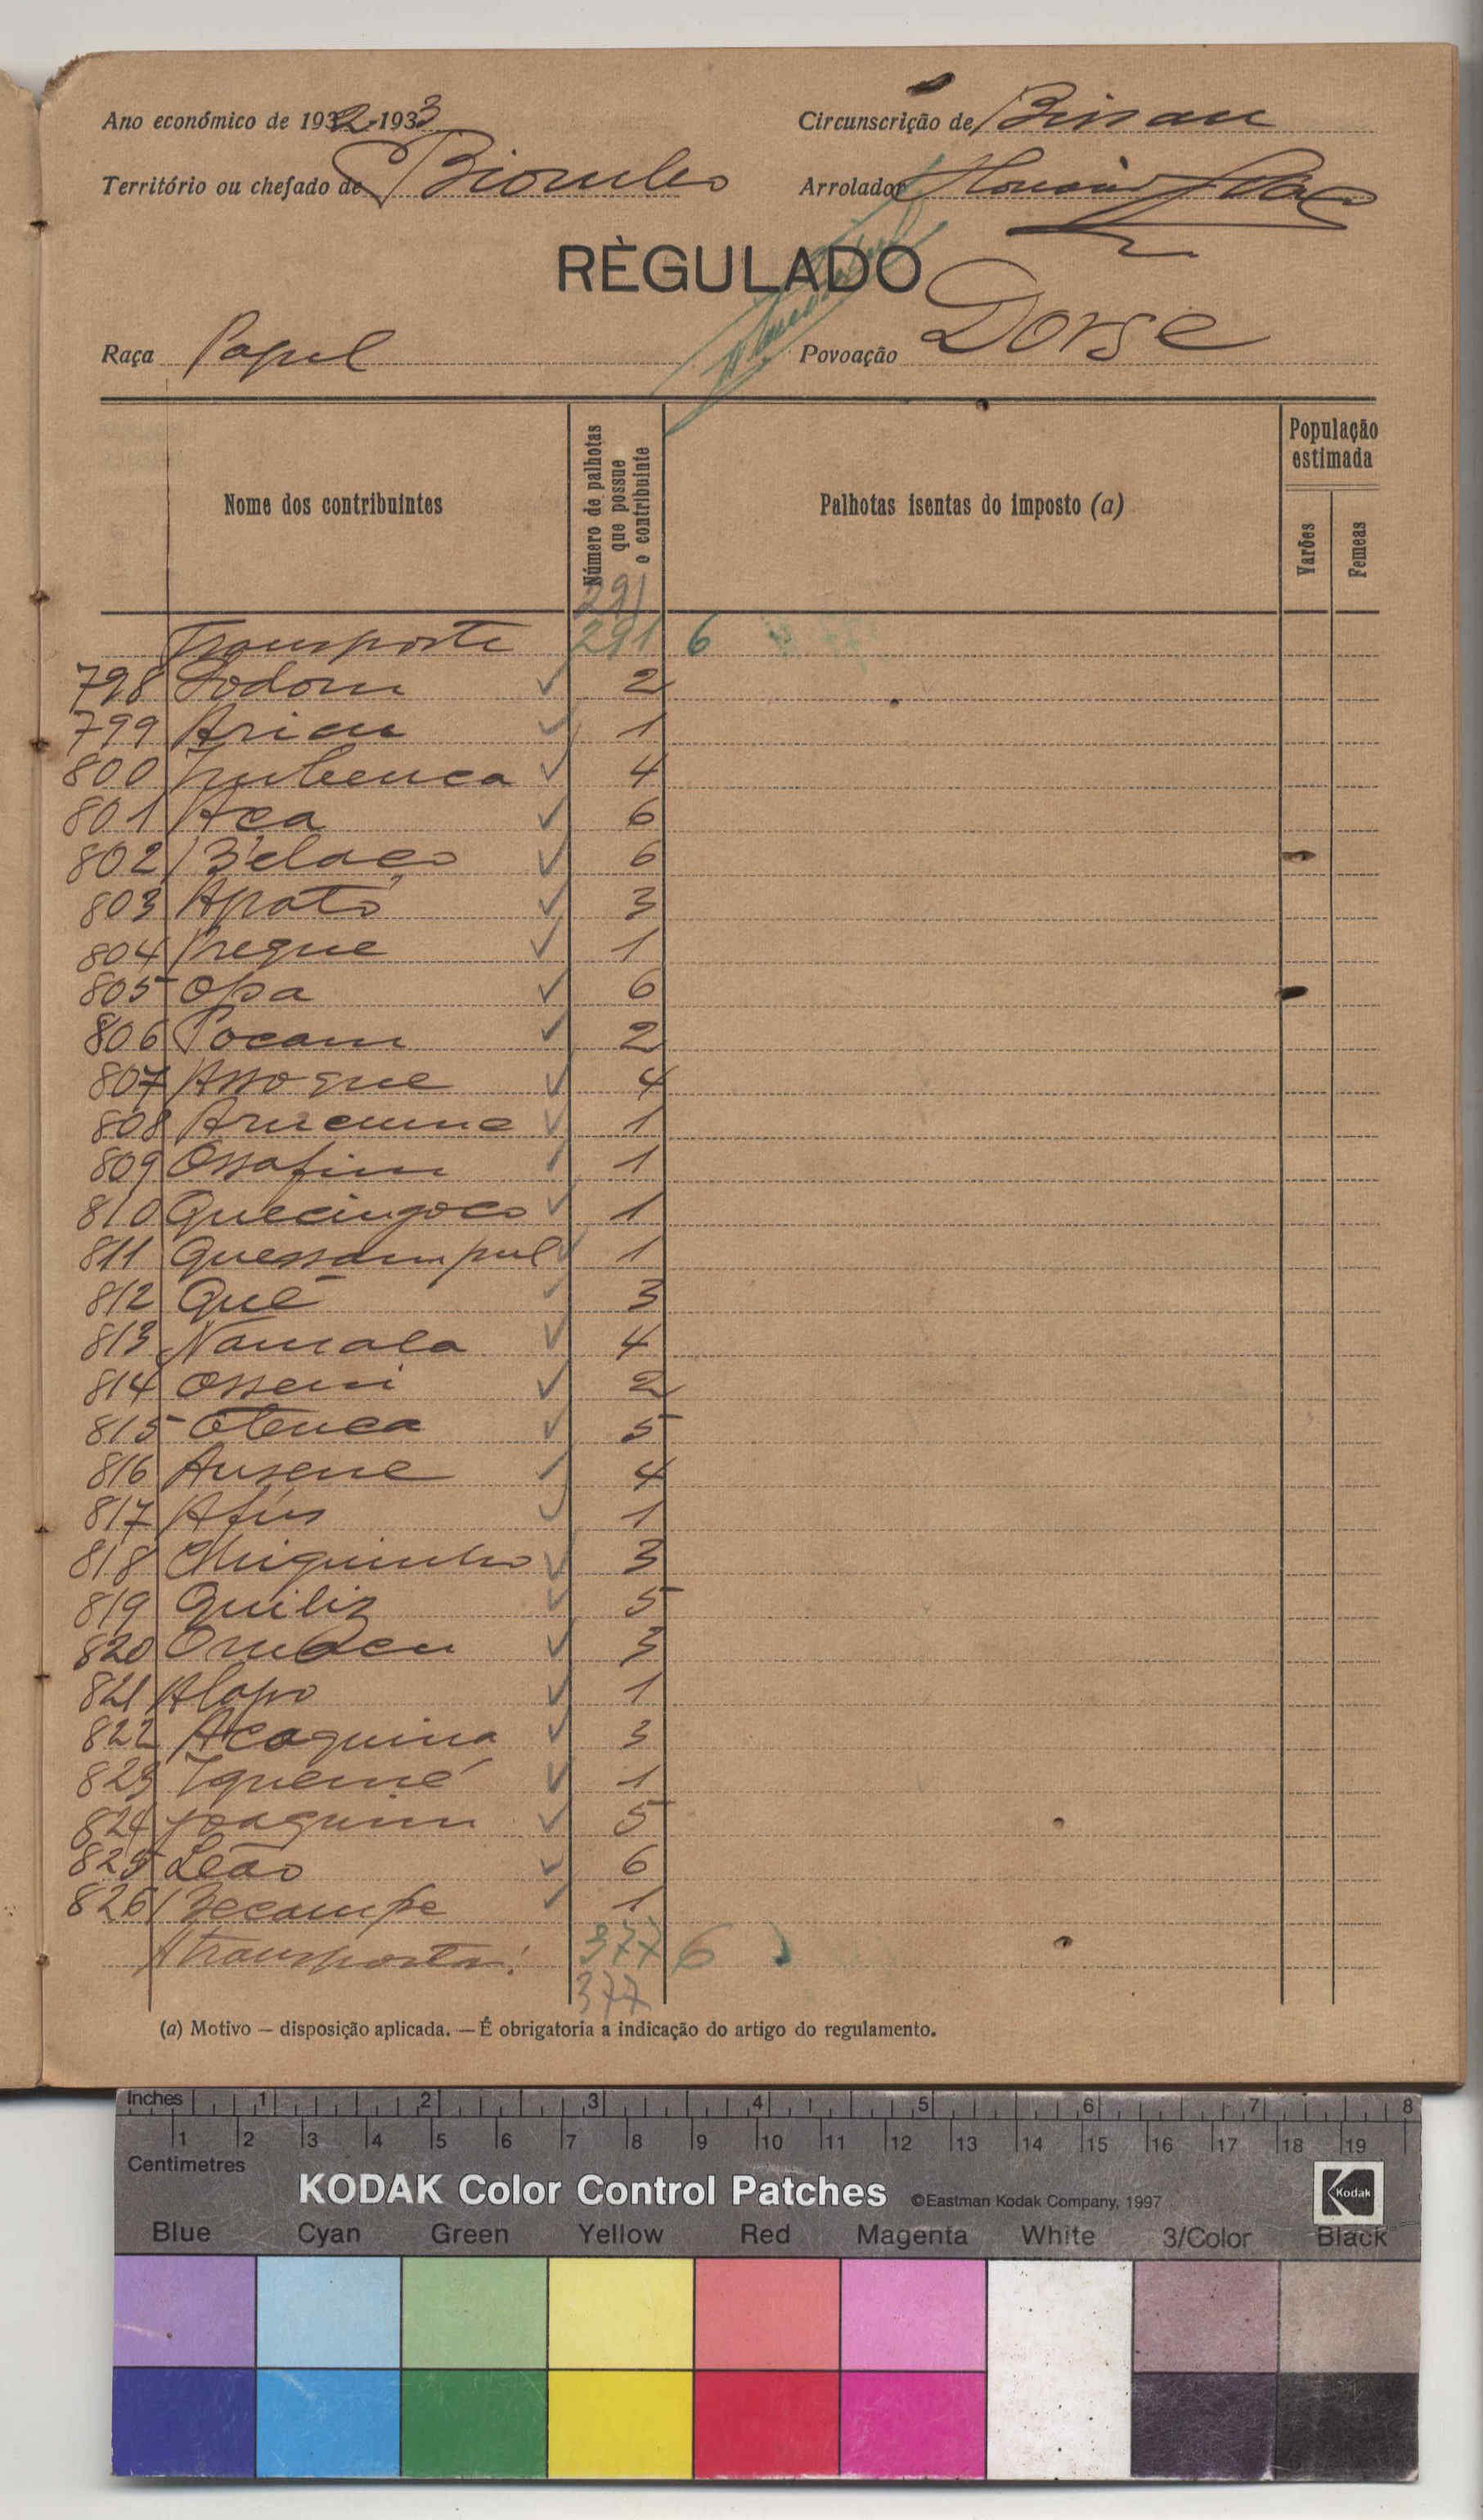 Ano económico de 1932-1933
Circunscrição de Bissau
Território ou chefado de Biombo
Arrolador
RÈGULADO
Raça Papel
Povoação Dorse
Nome dos contribuintes
Número de palhotas que possue o contribuinte
Palhotas isentas do imposto (a)
População estimada
Varões
Femeas
291
Transporte 291 6
798 Sodom 2
799 Ariau 1
800 4
801 Aca 6
802 Belaco 6
803 Apató 3
804 Preque 1
805 Opa 6
806 Pocam 2
807 Assoque 4
808 1
809 Ossafim 1
810 Quecingoco 1
811 Quessampul 1
812 Quê 3
813 Namcala 4
814 2
815 5
816 4
817 Afus 1
818 Chiquinho 3
819 Quiliz 5
820 3
821 Alapo 1
822 Acoquina 3
823 Iquemé 1
824 Joaquim 5
825 Leão 6
826 Becampe 1
A transportar 377 6
377
(a) Motivo — disposição aplicada. — É obrigatoria a indicação do artigo do regulamento.
Inches 1 2 3 4 5 6 7 8
1 2 3 4 5 6 7 8 9 10 11 12 13 14 15 16 17 18 19
Centimetres
KODAK Color Control Patches ©Eastman Kodak Company, 1997 Kodak
Blue Cyan Green Yellow Red Magenta White 3/Color Black